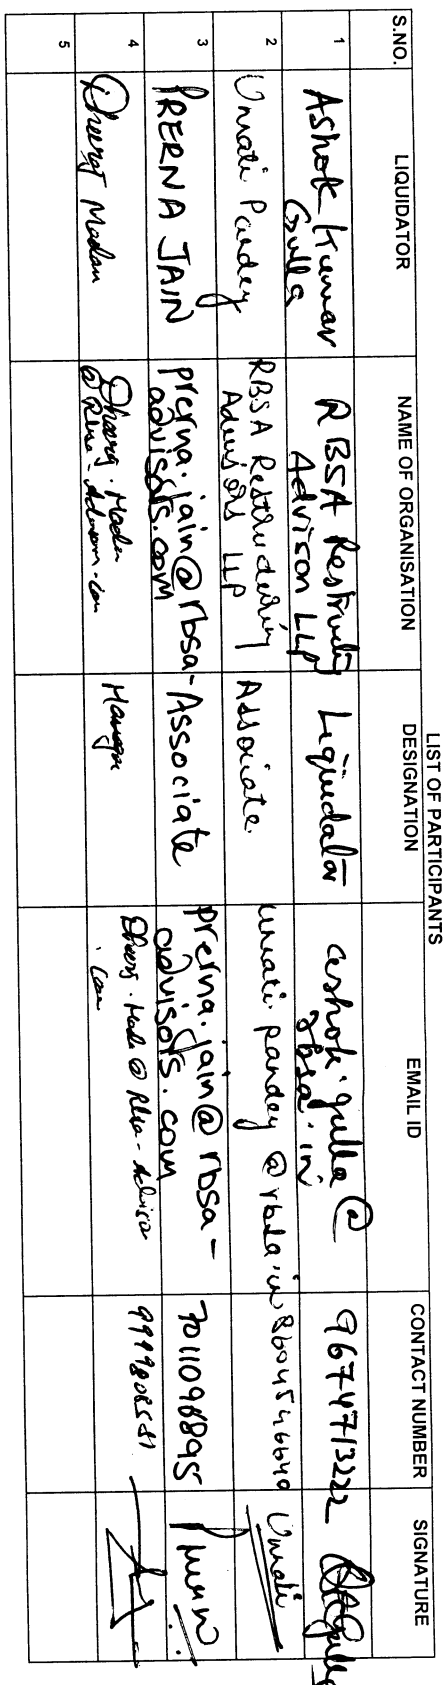 LIST OF PARTICIPANTS
S.NO. LIQUIDATOR NAME OF ORGANISATION DESIGNATION EMAIL ID CONTACT NUMBER SIGNATURE
1 Ashok Kumar Gulla RBSA Advisors LLP Liquidator ashok.gulla@rbsa.in 9674713222
2 Unnati Pandey RBSA Restructuring Advisors LLP Associate unnati.pandey@rbsa.in 8604546640 Unnati
3 PRERNA JAIN prerna.jain@rbsa-advisors.com Associate prerna.jain@rbsa-advisors.com 7011098895
4 Dheeraj Madan Manager
5